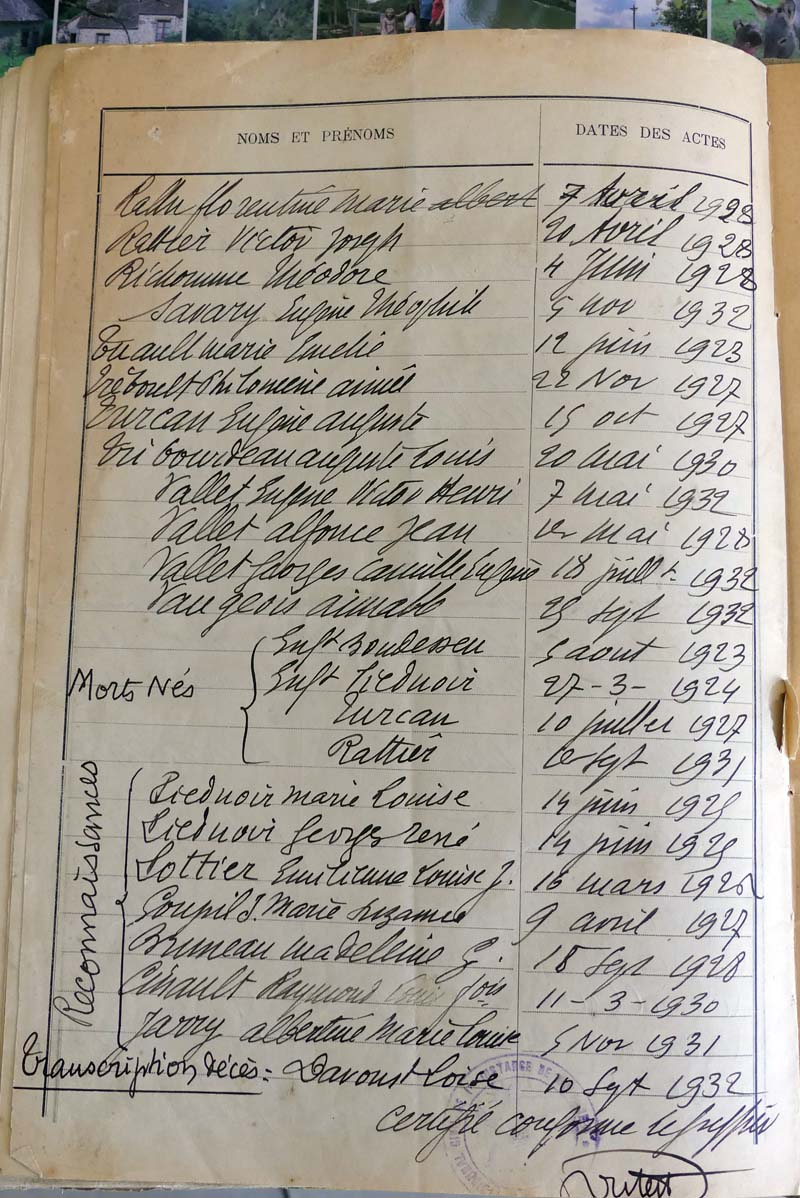 NOMS ET PRÉNOMS DATES DES ACTES
Rallu florentine marie albert 7 Avril 1928
Rattier Victor Joseph 20 Avril 1928
Richomme Théodore 4 Juin 1928
Savary Eugène Théophile 5 nov 1932
Tuault marie Emelie 12 juin 1923
Tréboult Philomène aimée 22 Nov 1927
Turcan Eugène auguste 15 oct 1927
Tribourdeau auguste Louis 20 mai 1930
Vallet Eugène Victor Henri 7 mai 1932
Vallet alfonce Jean 1er mai 1928
Vallet Georges Camille Eugène 18 juillt 1932
Vaugeois aimable 25 Sept 1932
Morts Nés
Enft 5 aout 1923
Enft Piednoir 27-3-1924
Turcan 10 juillet 1927
Rattier Sept 1931
Reconnaissances
Piednoir marie Louise 14 juin 1925
Piednoir Georges René 14 juin 1925
Lottier Emilienne Louise J. 16 mars 1926
Goupil J. Marie Suzanne 9 avril 1927
Bruneau madeleine G. 18 Sept 1928
Raymond fois 11-3-1930
Jarry albertine Marie Louise 5 Nov 1931
Transcription décès: Davoust Loise 10 Sept 1932
certifié conforme le greffier